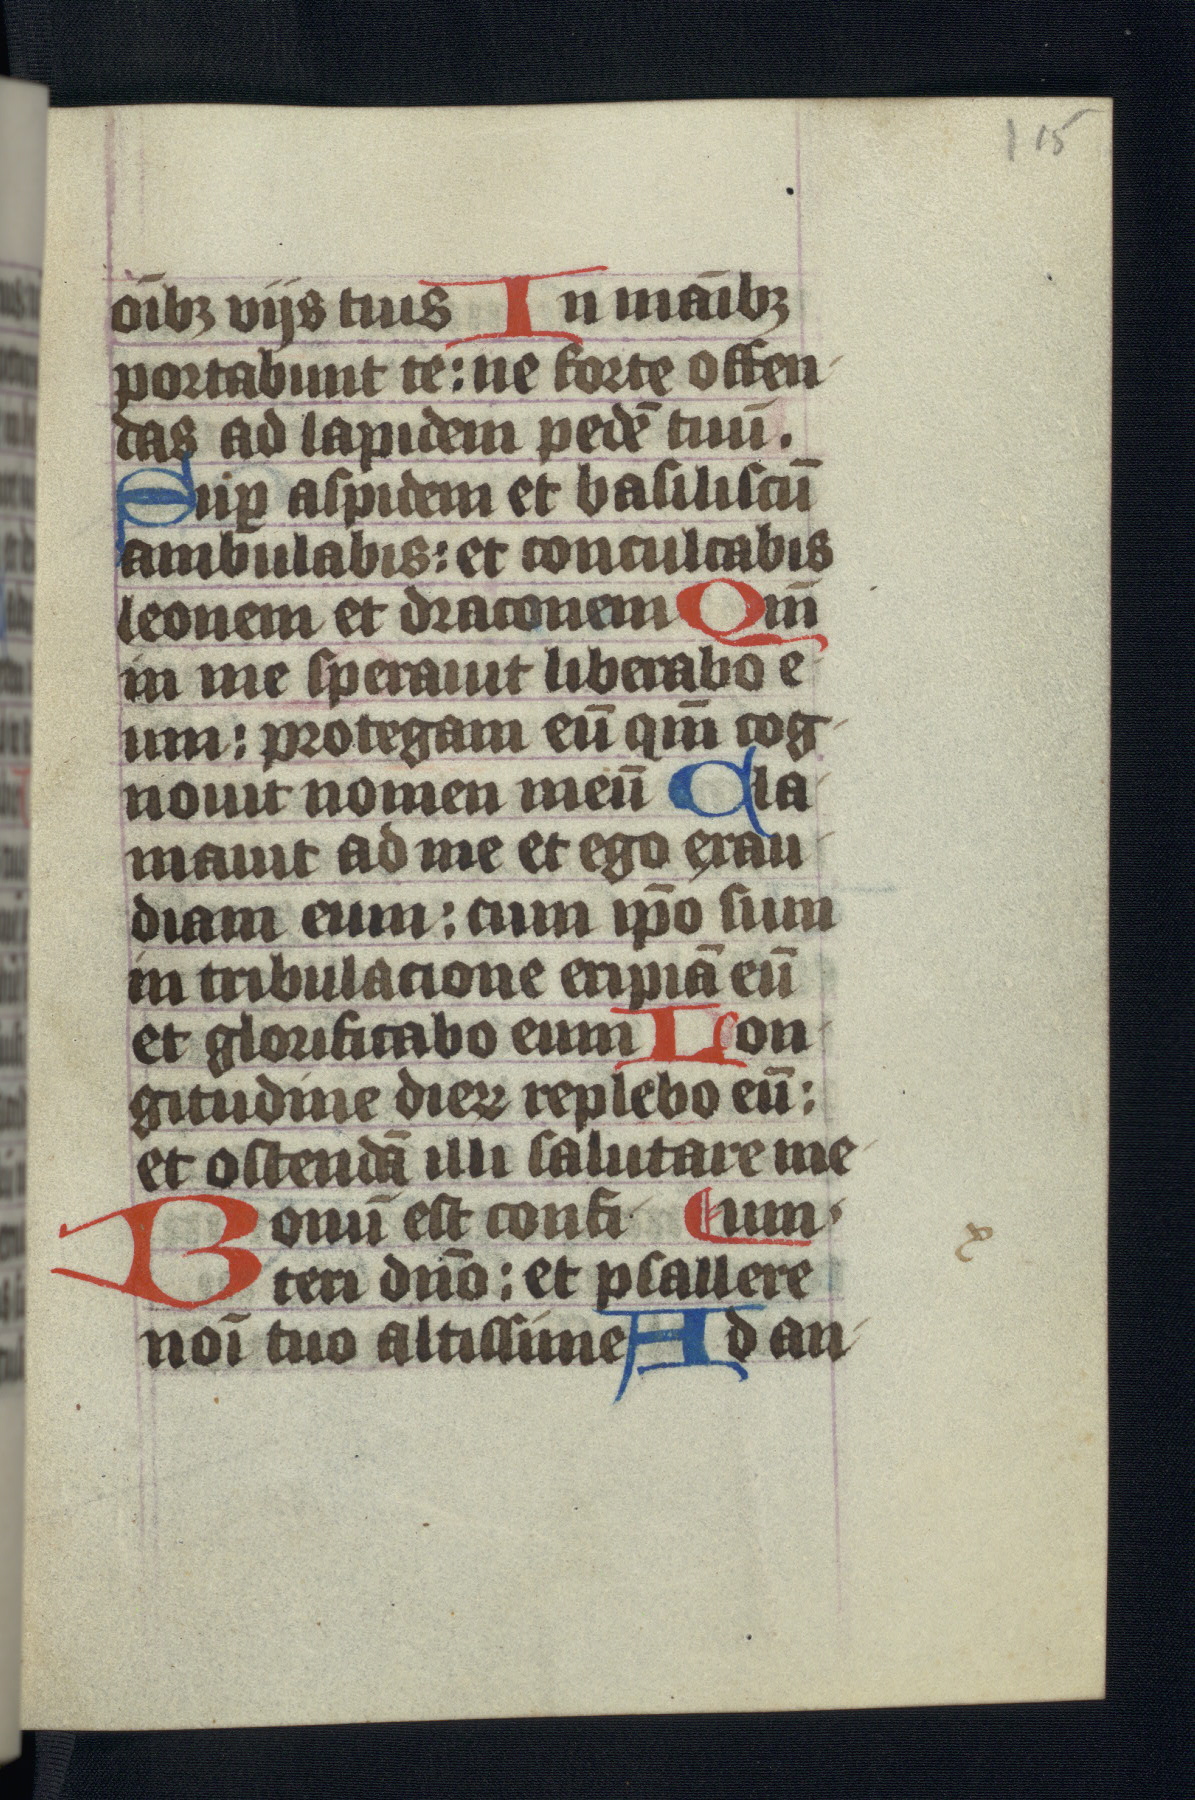 115
oībꝫ vijs tuis In māibꝫ
portabunt te: ne forte offen-
das ad lapidem pedē tuū.
Suꝑ aspidem et basiliscū
ambulabis: et conculcabis
leonem et draconem Qm̄
in me sperauit liberabo e-
um: protegam eū qm̄ cog-
nouit nomen meū Cla-
mauit ad me et ego exau-
diam eum: cum ip̄o sum
in tribulacione eripiā eū
et glorificabo eum Lon-
gitudine dieꝝ replebo eū:
et ostendā illi salutare me-
Bonū est confi- um.
teri dn̄o: et psallere
noī tuo altissime Ad an-